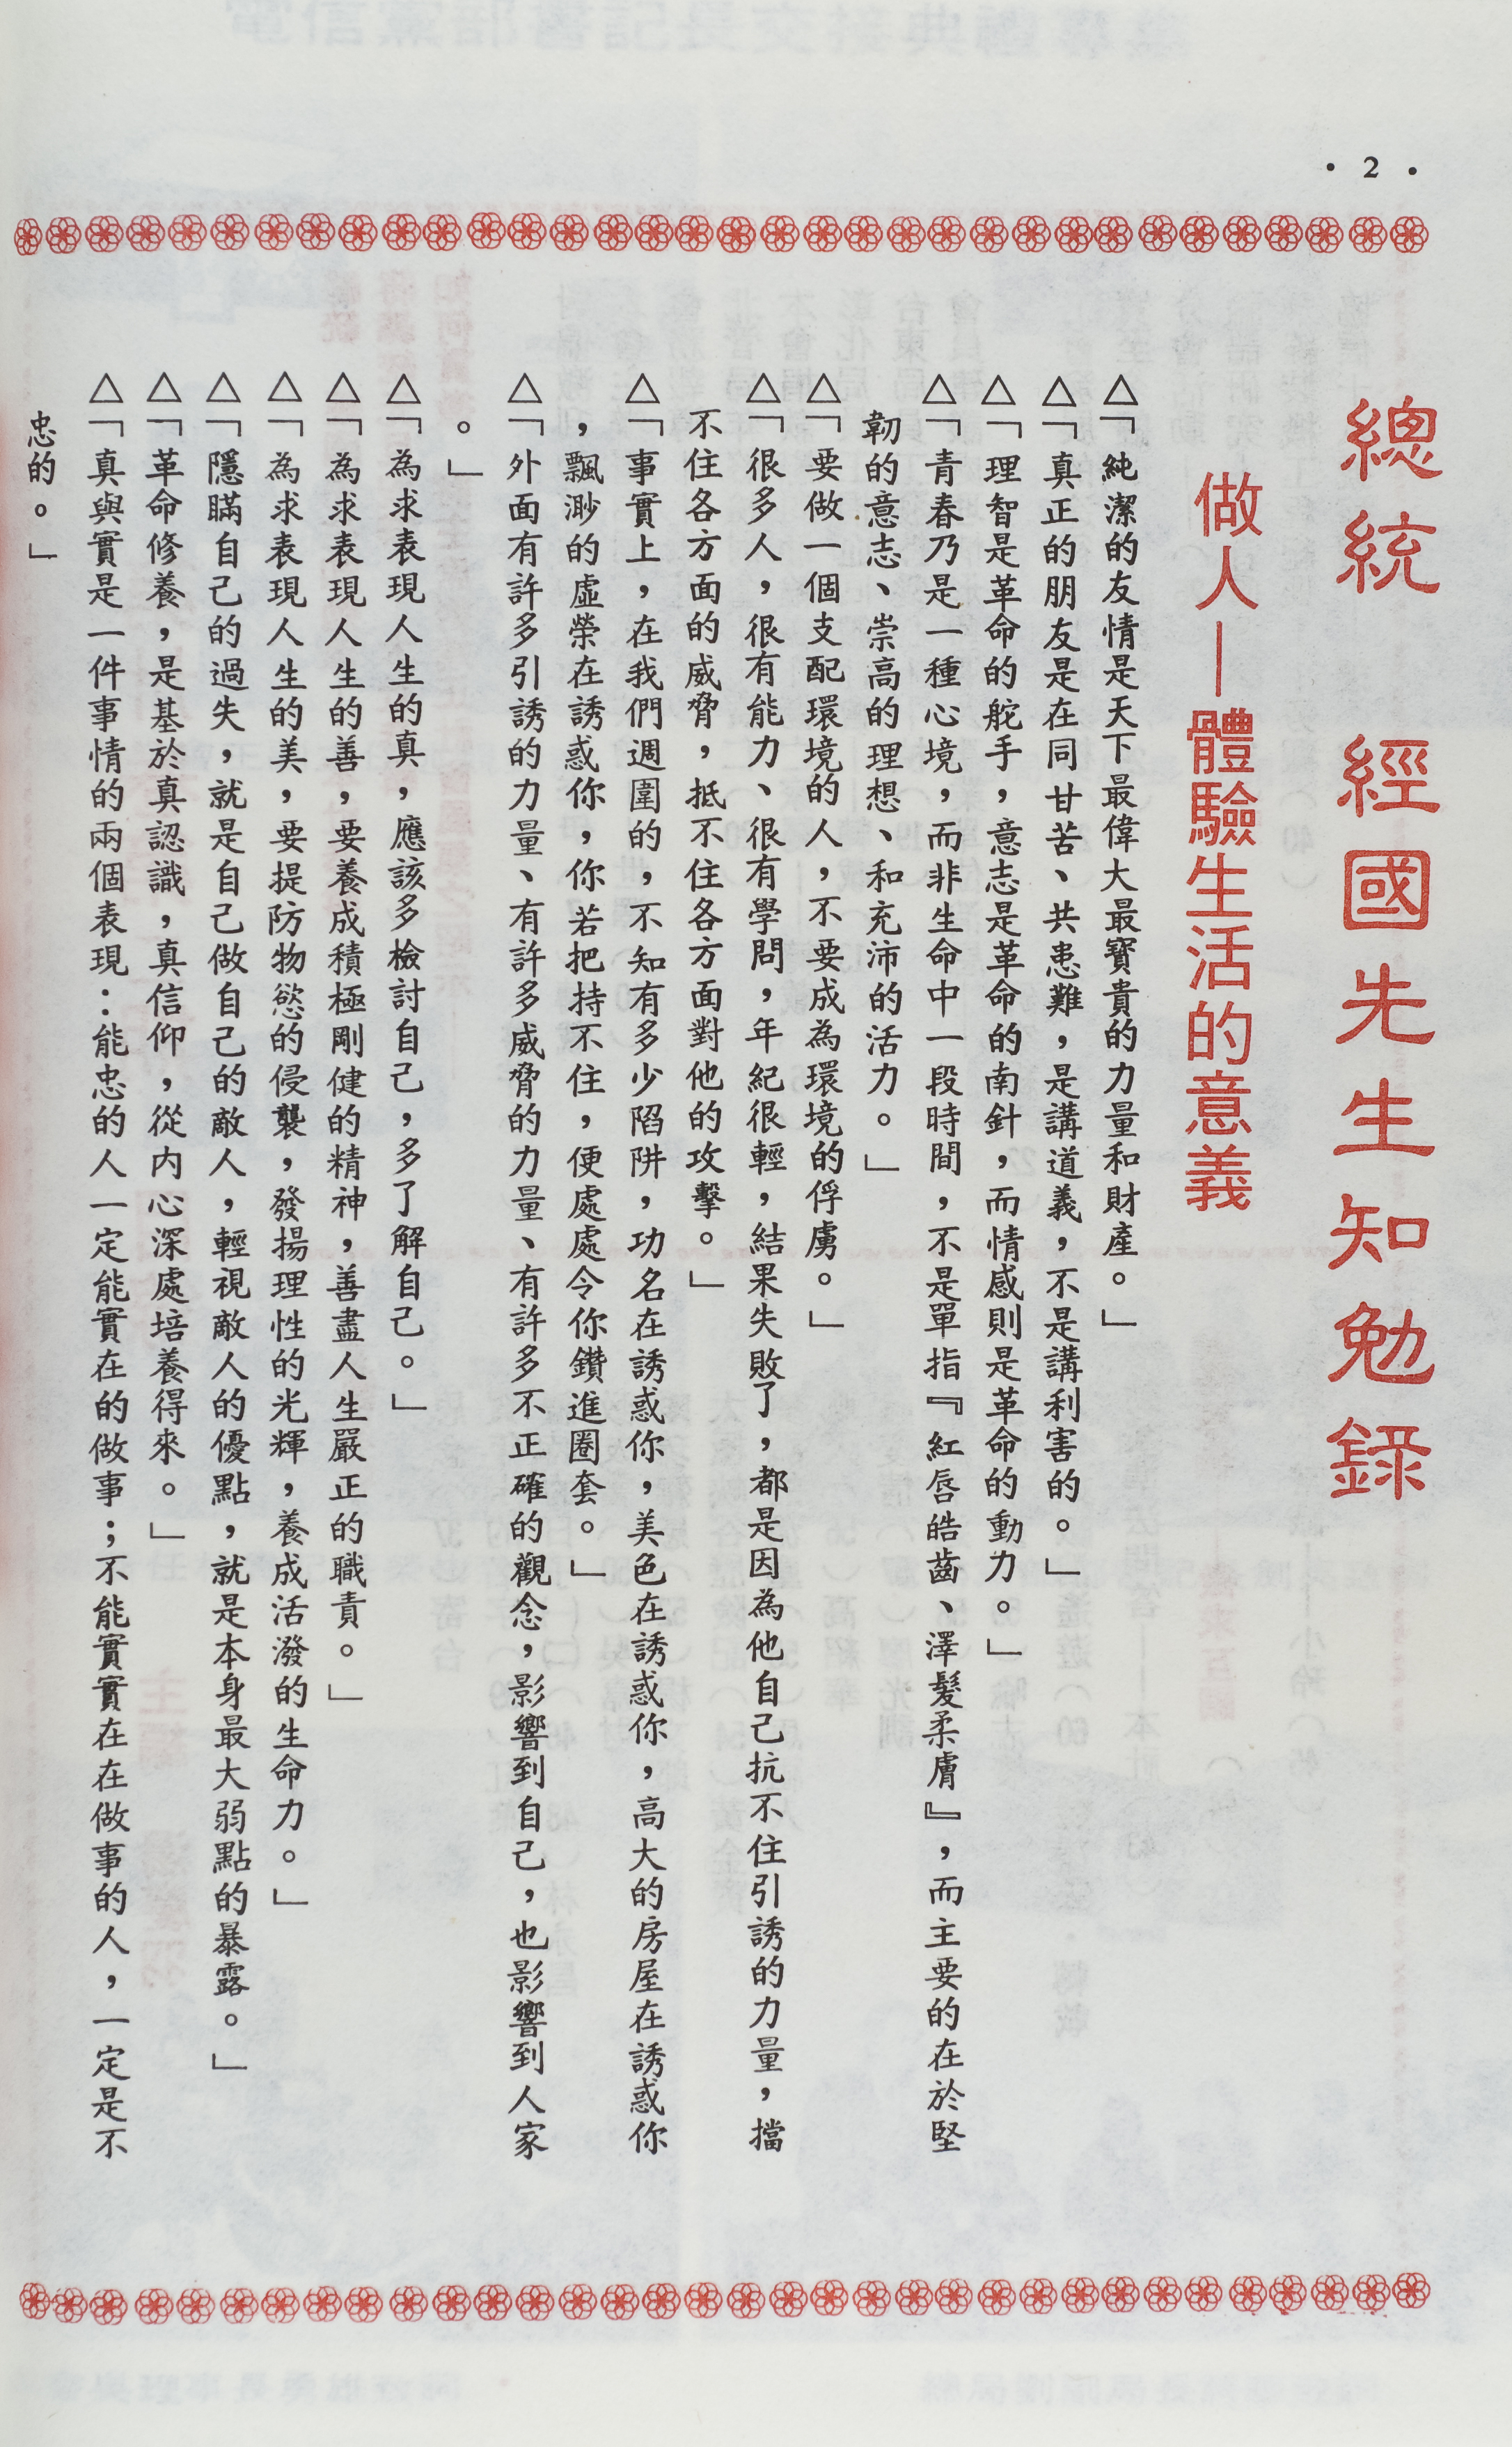 • 2 •
總統 經國先生知勉錄
做人—體驗生活的意義
△「純潔的友情是天下最偉大最寶貴的力量和財產。」
△「真正的朋友是在同甘苦、共患難，是講道義，不是講利害的。」
△「理智是革命的舵手，意志是革命的南針，而情感則是革命的動力。」
△「青春乃是一種心境，而非生命中一段時間，不是單指『紅唇皓齒、澤髮柔膚』，而主要的在於堅
韌的意志、崇高的理想、和充沛的活力。」
△「要做一個支配環境的人，不要成為環境的俘虜。」
△「很多人，很有能力、很有學問，年紀很輕，結果失敗了，都是因為他自己抗不住引誘的力量，擋
不住各方面的威脅，抵不住各方面對他的攻擊。」
△「事實上，在我們週圍的，不知有多少陷阱，功名在誘惑你，美色在誘惑你，高大的房屋在誘惑你
，飄渺的虛榮在誘惑你，你若把持不住，便處處令你鑽進圈套。」
△「外面有許多引誘的力量、有許多威脅的力量、有許多不正確的觀念，影響到自己，也影響到人家
。」
△「為求表現人生的真，應該多檢討自己，多了解自己。」
△「為求表現人生的善，要養成積極剛健的精神，善盡人生嚴正的職責。」
△「為求表現人生的美，要提防物慾的侵襲，發揚理性的光輝，養成活潑的生命力。」
△「隱瞞自己的過失，就是自己做自己的敵人，輕視敵人的優點，就是本身最大弱點的暴露。」
△「革命修養，是基於真認識，真信仰，從內心深處培養得來。」
△「真與實是一件事情的兩個表現：能忠的人一定能實在的做事；不能實實在在做事的人，一定是不
忠的。」